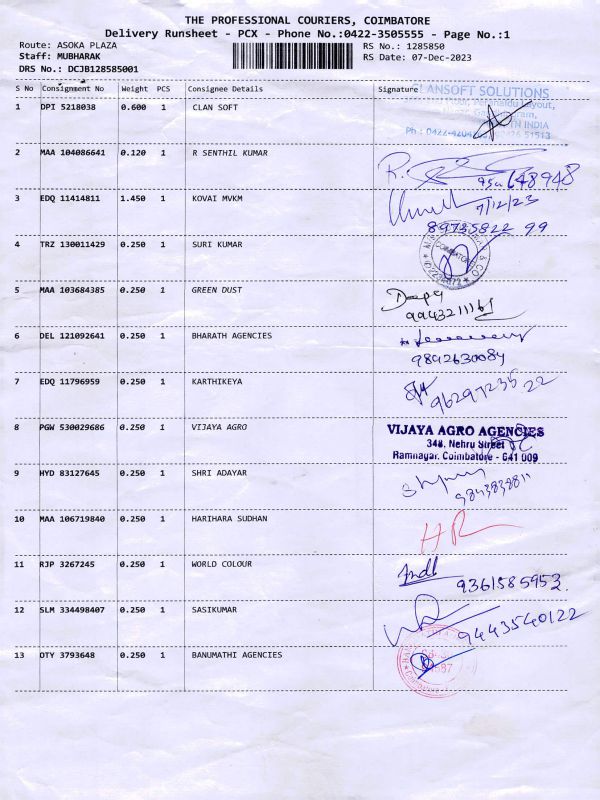 THE PROFESSIONAL COURIERS, COIMBATORE
Delivery Runsheet - PCX - Phone No.:0422-3505555 - Page No.:1
Route: ASOKA PLAZA
RS No.: 1285850
Staff: MUBHARAK
RS Date: 07-Dec-2023
DRS No.: DCJB128585001
S No Consignment No Weight PCS Consignee Details Signature
CLANSOFT SOLUTIONS
1 DPI 5218038 0.600 1 CLAN SOFT
INDIA
2 MAA 104086641 0.120 1 R SENTHIL KUMAR
3 EDQ 11414811 1.450 1 KOVAI MVKM
7/12/23
89735822 99
4 TRZ 130011429 0.250 1 SURI KUMAR
COIMBATORE
5 MAA 103684385 0.250 1 GREEN DUST
6 DEL 121092641 0.250 1 BHARATH AGENCIES
9842630084
7 EDQ 11796959 0.250 1 KARTHIKEYA
96297235 22
8 PGW 530029686 0.250 1 VIJAYA AGRO
VIJAYA AGRO AGENCIES
348, Nehru Street
Ramnagar, Coimbatore - 641 009
9 HYD 83127645 0.250 1 SHRI ADAYAR
10 MAA 106719840 0.250 1 HARIHARA SUDHAN
HR
11 RJP 3267245 0.250 1 WORLD COLOUR
9361585953.
12 SLM 334498407 0.250 1 SASIKUMAR
9443540122
13 OTY 3793648 0.250 1 BANUMATHI AGENCIES